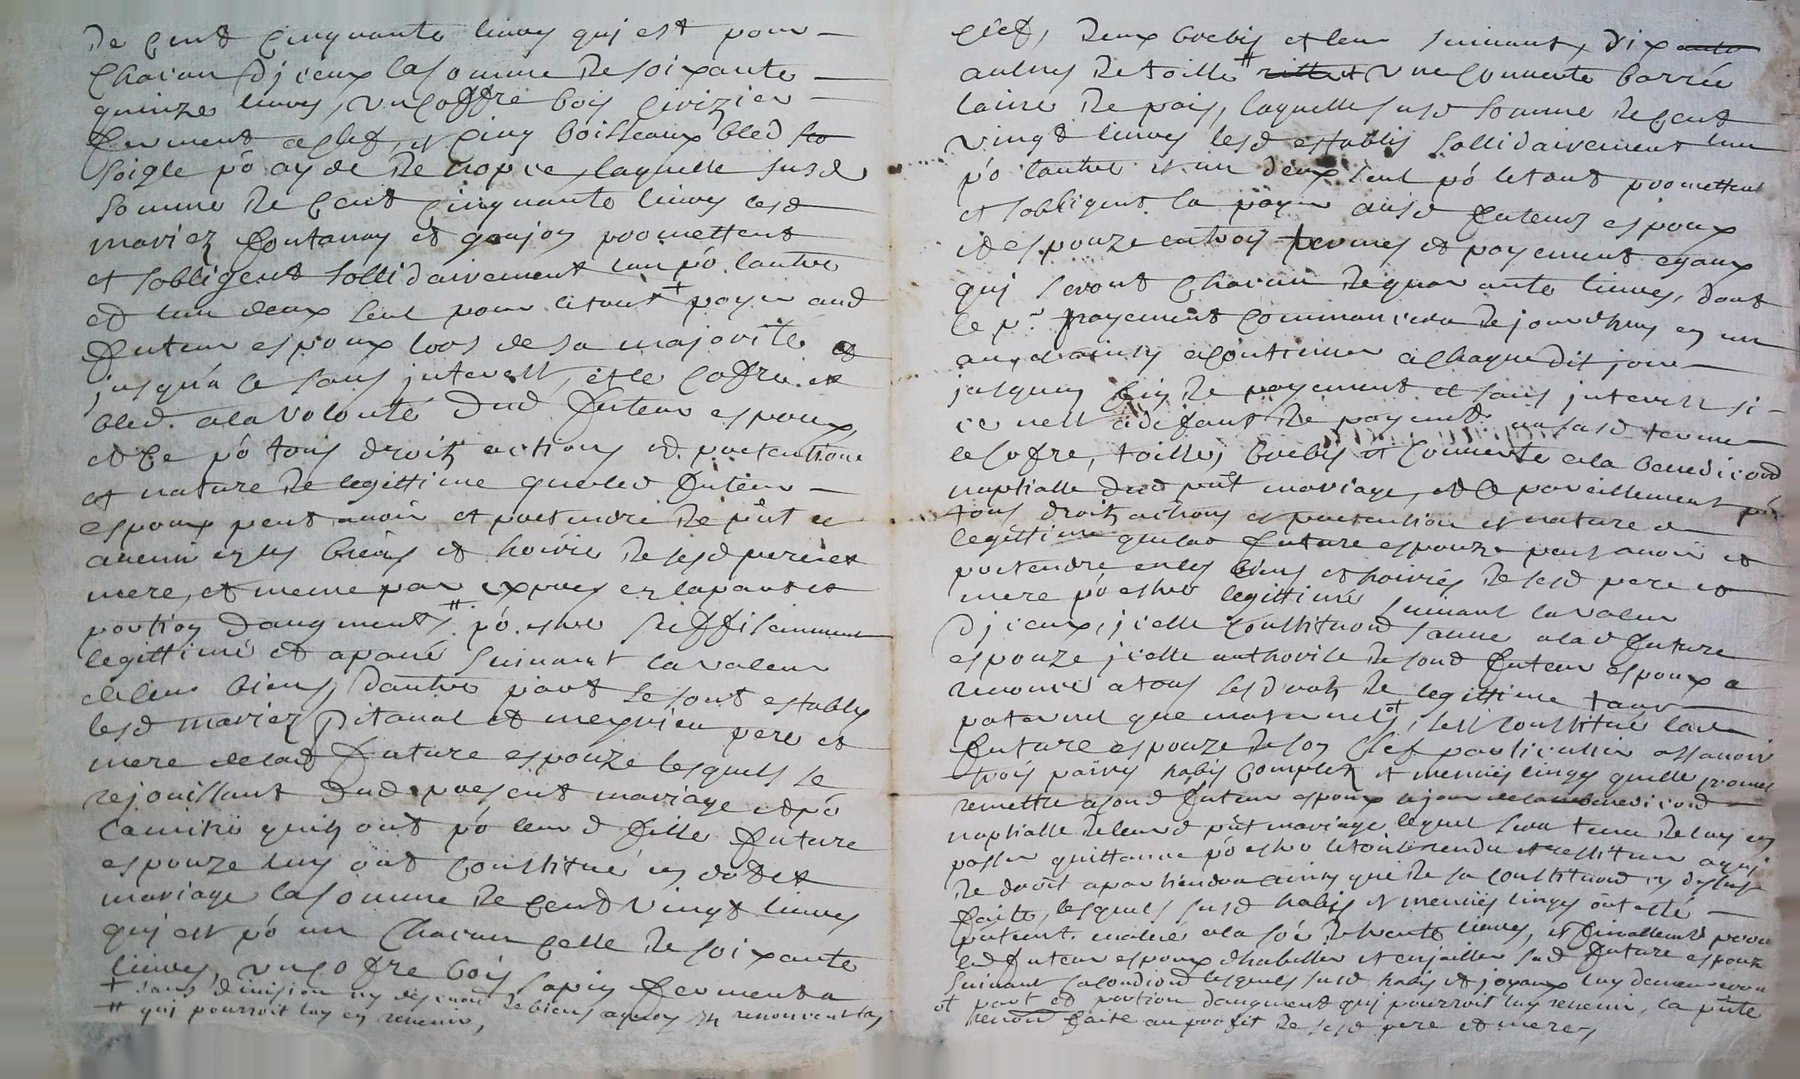 de cent cinquante livres qui est pour
chacun djceux la somme de soixante
quinze livres, un coffre bois cirizier
fermant a clef, et cinq boisseaux bled
soigle po ayde de nopce, laquelle susd
somme de cent cinquante livres lesd
mariez fontanay et goujon promettent
et sobligent sollidairement lun po lautre
et lun deux seul pour le tout + payer aud
futeur espoux lors de sa majorité et
jusqua ce sans jnterest, et le coffre et
bled a la volonté dud futeur espoux
et ce po tous droitz actions et pretentions
et nature de legittime que led futeur
espoux peut avoir et pretendre de pnt et
avenir ez les biens et hoirie de sesd pere et
mere, et meme par expres ez la part et
portion daugment # po estre suffisamment
legittimé et apané suivant la valeur
de leur biens, dautre part se sont establis
lesd mariez Pitaval et meyrieu pere et
mere de lad future espouze lesquels se
rejouissant dud present mariage et po
lamitié quilz ont po leurd fille future
espouze luy ont constitué en dot et
mariage la somme de cent vingt livres
qui est po un chacun celle de soixante
livres, un cofre bois sapin fermant a
+ sans division ny discution de biens a quoy ilz renoncent
# qui pourroit luy en revenir,
clef, deux brebis et leur suivant, dix
aulnes de toille # une couverte barrée
laine de pais, laquelle susd somme de cent
vingt livres lesd establis sollidairement lun
po lautre et un deux seul po le tout promettent
et sobligent la payer ausd futeurs espoux
et espouze en trois termes et payements egaux
qui seront chacun de quarante livres, dont
le pr payement commancera de jourdhuy en un
an, et ainsy a continuer a chaque dit jour
jusques fin de payement et sans jnterest si
ce nest a defaut de payement ausd terme
le cofre, toilles, brebis et couverte a la benediction
nuptialle dud pnt mariage, et ce pareillement po
tous droitz actions et pretention et nature de
legittime que lad future espouze peut avoir et
pretendre en les biens et hoiries de sesd pere et
mere po estre legittimé suivant la valeur
djceux, jcelle constitution sauve a lad future
espouze jcelle authorisé de sond futeur espoux a
renoncé a tous sesd droitz de legittime tant
paternel que maternel, sest constitué lad
future espouze de son chef particullier assavoir
trois paires habis complets et menues linges quelle promet
remettre a sond futeur espoux le jour de la benediction
nuptialle de leurd pnt mariage lequel sera tenu de luy en
passer quittance po estre le tout rendu et restitué a qui
de droit apartiendra ainsy que de sa constitution cy dessus
faite, lesquels susd habis et menues linges ont esté
pntement evalués a la so de trente livres, et finallement promet
led futeur espoux dhabiller et enjoailler sad future espouze
suivant sa condition lesquels susd habis et joyaux luy demeureront
part et portion daugment qui pourroit luy revenir, la pnte
renon faite au proffit de sesd pere et mere